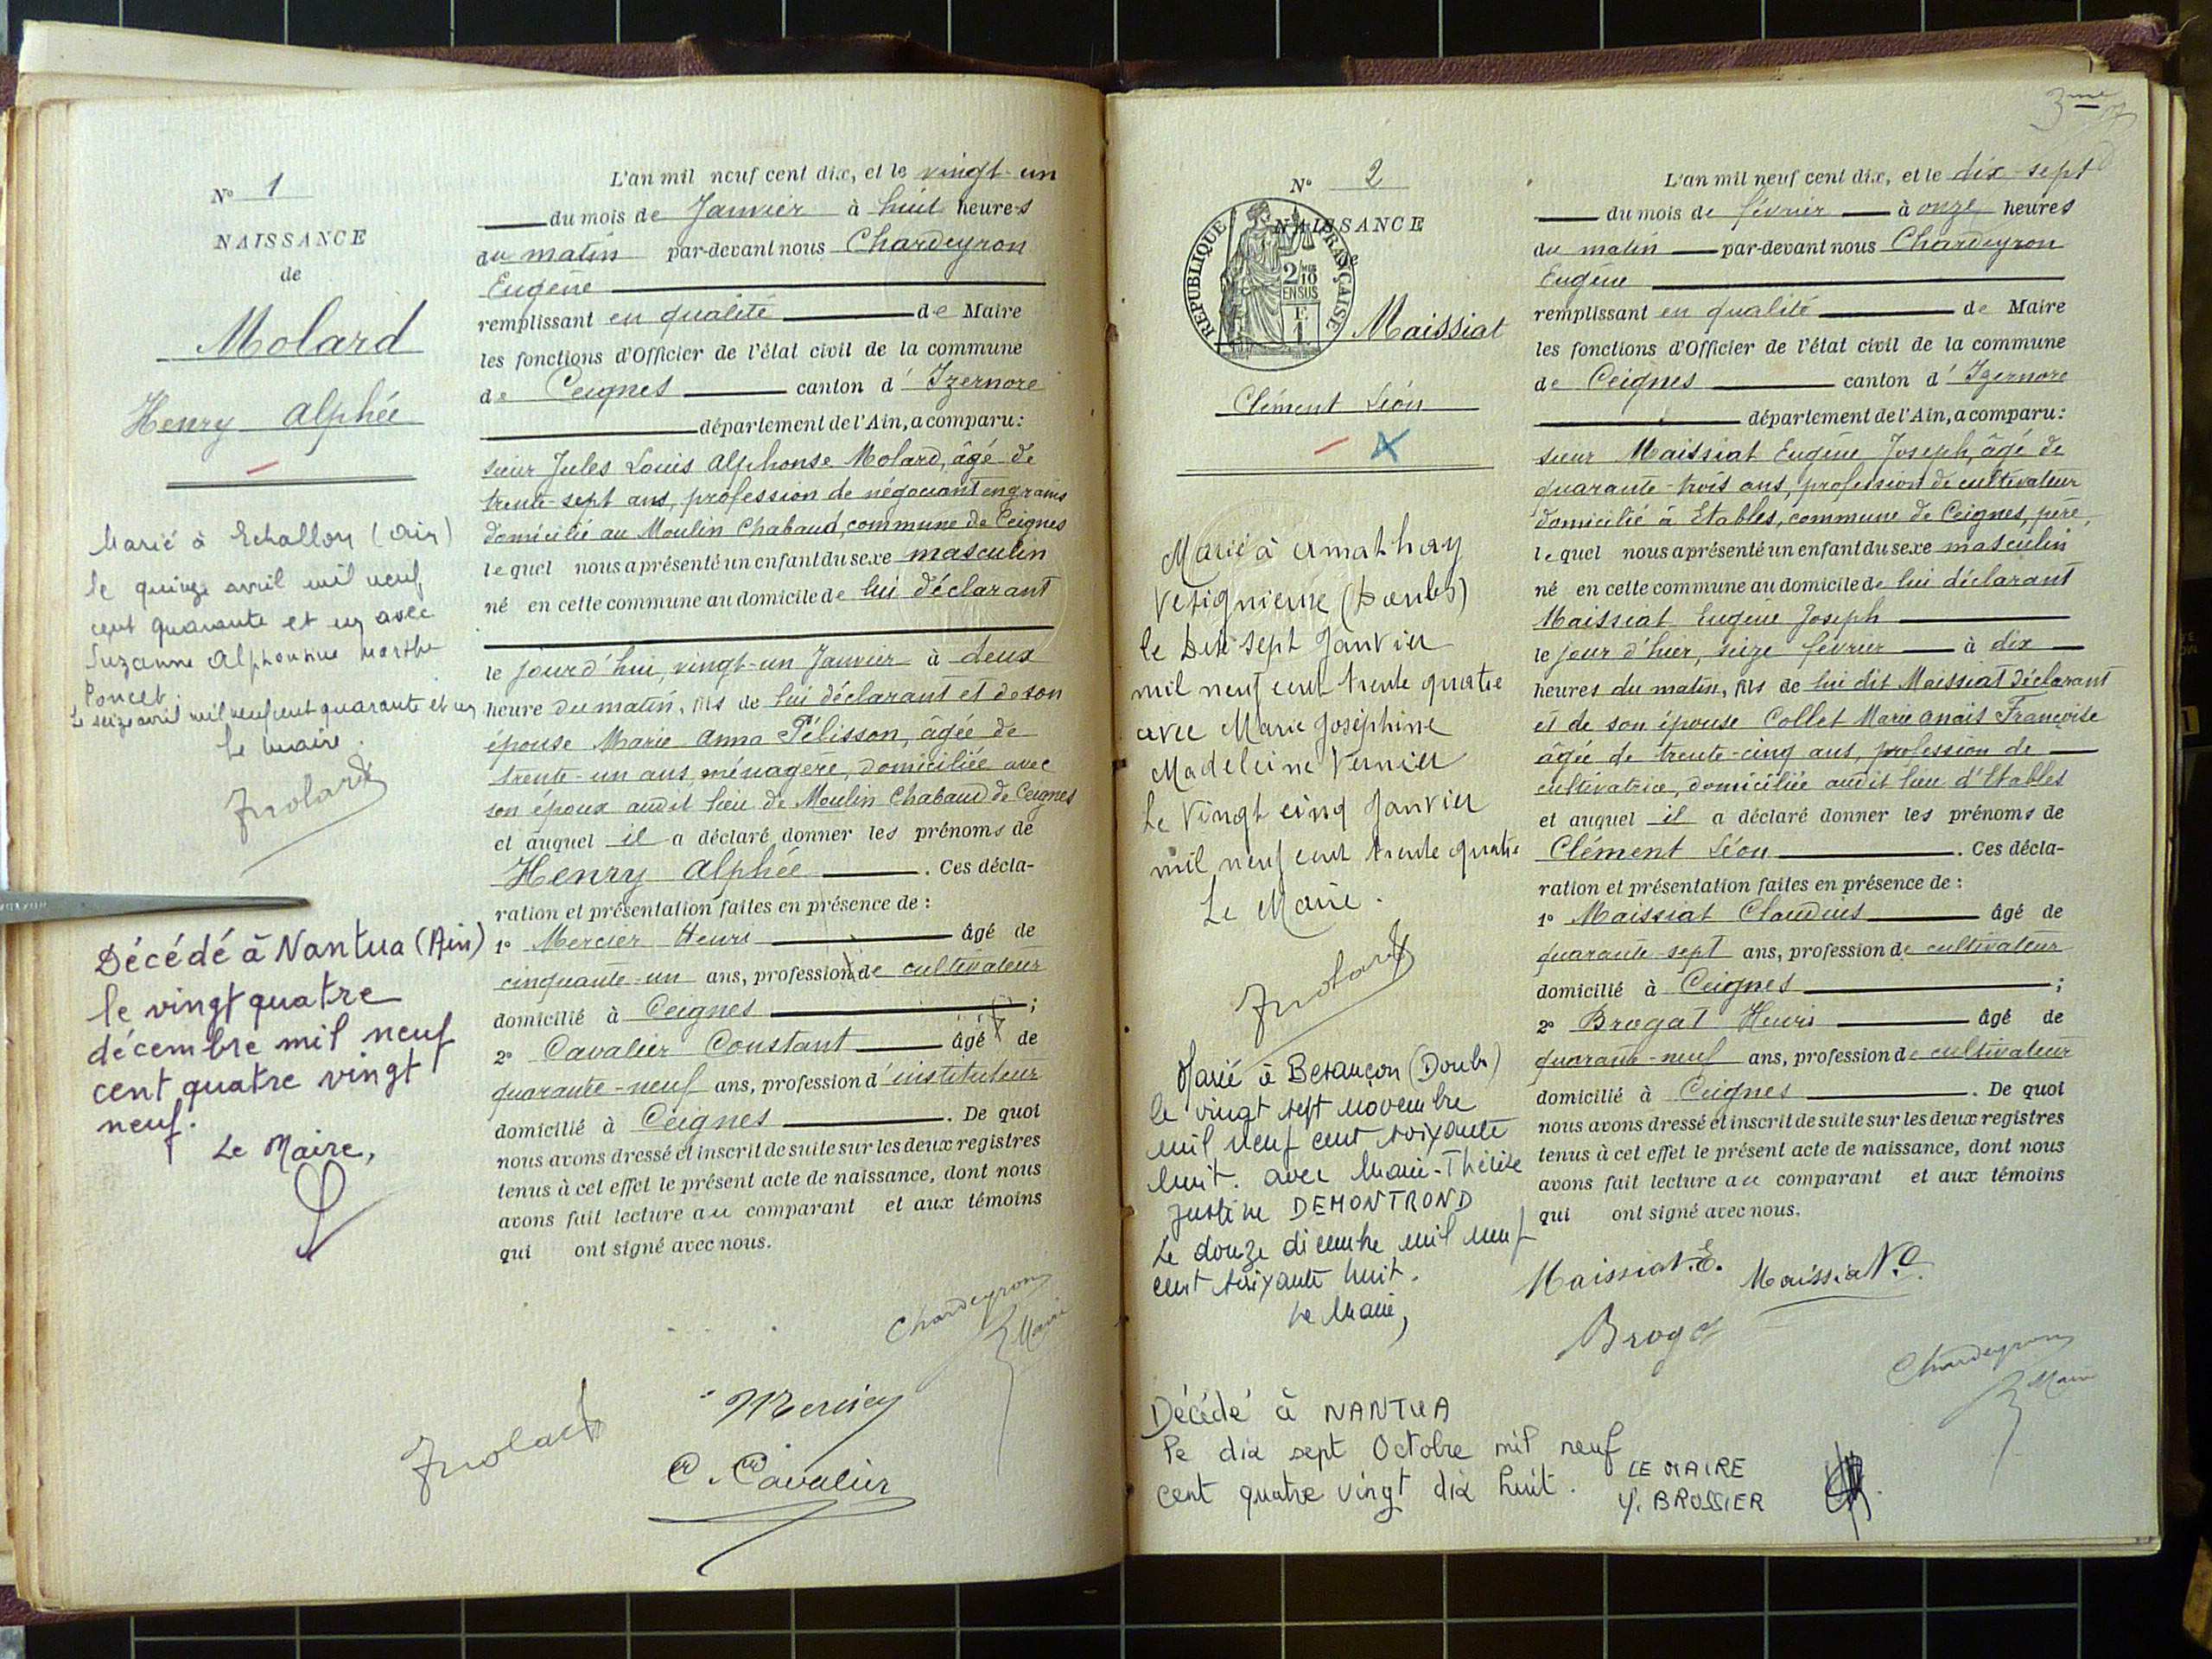 N° 1
NAISSANCE
de
Molard
Henry Alphée
Marié à Echallon (Ain)
le quinze avril mil neuf
cent quarante et un avec
Suzanne Alphonsine Marthe
Poncet.
Le seize avril mil neuf cent quarante et un
Le Maire.
Molard
Décédé à Nantua (Ain)
le vingt quatre
décembre mil neuf
cent quatre vingt
neuf.
Le Maire,
L'an mil neuf cent dix, et le vingt-un
du mois de Janvier à huit heures
du matin par-devant nous Chardeyron
Eugène
remplissant en qualité de Maire
les fonctions d'Officier de l'état civil de la commune
de Ceignes canton d'Izernore
département de l'Ain, a comparu:
sieur Jules Louis Alphonse Molard, âgé de
trente-sept ans, profession de négociant en grains
domicilié au Moulin Chabaud, commune de Ceignes
lequel nous a présenté un enfant du sexe masculin
né en cette commune au domicile de lui déclarant
le jour d'hui, vingt-un Janvier à deux
heure du matin, fils de lui déclarant et de son
épouse Marie Anna Pélisson, âgée de
trente-un ans, ménagère, domiciliée avec
son époux audit lieu de Moulin Chabaud de Ceignes
et auquel il a déclaré donner les prénoms de
Henry Alphée. Ces décla-
ration et présentation faites en présence de :
1° Mercier Henri âgé de
cinquante-un ans, profession de cultivateur
domicilié à Ceignes ;
2° Cavalier Constant âgé de
quarante-neuf ans, profession d'instituteur
domicilié à Ceignes. De quoi
nous avons dressé et inscrit de suite sur les deux registres
tenus à cet effet le présent acte de naissance, dont nous
avons fait lecture au comparant et aux témoins
qui ont signé avec nous.
Chardeyron
Maire
Mercier
Molard
C. Cavalier
3me
N° 2
NAISSANCE
de
RÉPUBLIQUE FRANÇAISE
2/10
EN SUS
Maissiat
Clément Léon
Marié à Amathay
Vésigneux (Doubs)
le Dix sept Janvier
mil neuf cent trente quatre
avec Marie Joséphine
Madeleine Vernier
Le Vingt cinq Janvier
mil neuf cent trente quatre
Le Maire.
Molard
Marié à Besançon (Doubs)
le vingt sept novembre
mil neuf cent soixante
huit. avec Marie-Thérèse
Justine DEMONTROND
Le douze décembre mil neuf
cent soixante huit.
Le Maire,
Décédé à NANTUA
le dix sept Octobre mil neuf
cent quatre vingt dix huit.
LE MAIRE
Y. BROSSIER
L'an mil neuf cent dix, et le dix-sept
du mois de février à onze heures
du matin par-devant nous Chardeyron
Eugène
remplissant en qualité de Maire
les fonctions d'Officier de l'état civil de la commune
de Ceignes canton d'Izernore
département de l'Ain, a comparu:
sieur Maissiat Eugène Joseph, âgé de
quarante-trois ans, profession de cultivateur
domicilié à Etables, commune de Ceignes, père,
lequel nous a présenté un enfant du sexe masculin
né en cette commune au domicile de lui déclarant
Maissiat Eugène Joseph
le jour d'hier, seize février à dix
heures du matin, fils de lui dit Maissiat déclarant
et de son épouse Collet Marie Anaïs Françoise
âgée de trente-cinq ans, profession de
cultivatrice, domiciliée audit lieu d'Etables
et auquel il a déclaré donner les prénoms de
Clément Léon. Ces décla-
ration et présentation faites en présence de :
1° Maissiat Claudius âgé de
quarante-sept ans, profession de cultivateur
domicilié à Ceignes ;
2° Brogat Henri âgé de
quarante-neuf ans, profession de cultivateur
domicilié à Ceignes. De quoi
nous avons dressé et inscrit de suite sur les deux registres
tenus à cet effet le présent acte de naissance, dont nous
avons fait lecture au comparant et aux témoins
qui ont signé avec nous.
Maissiat. E. Maissiat. C.
Brogat
Chardeyron
Maire